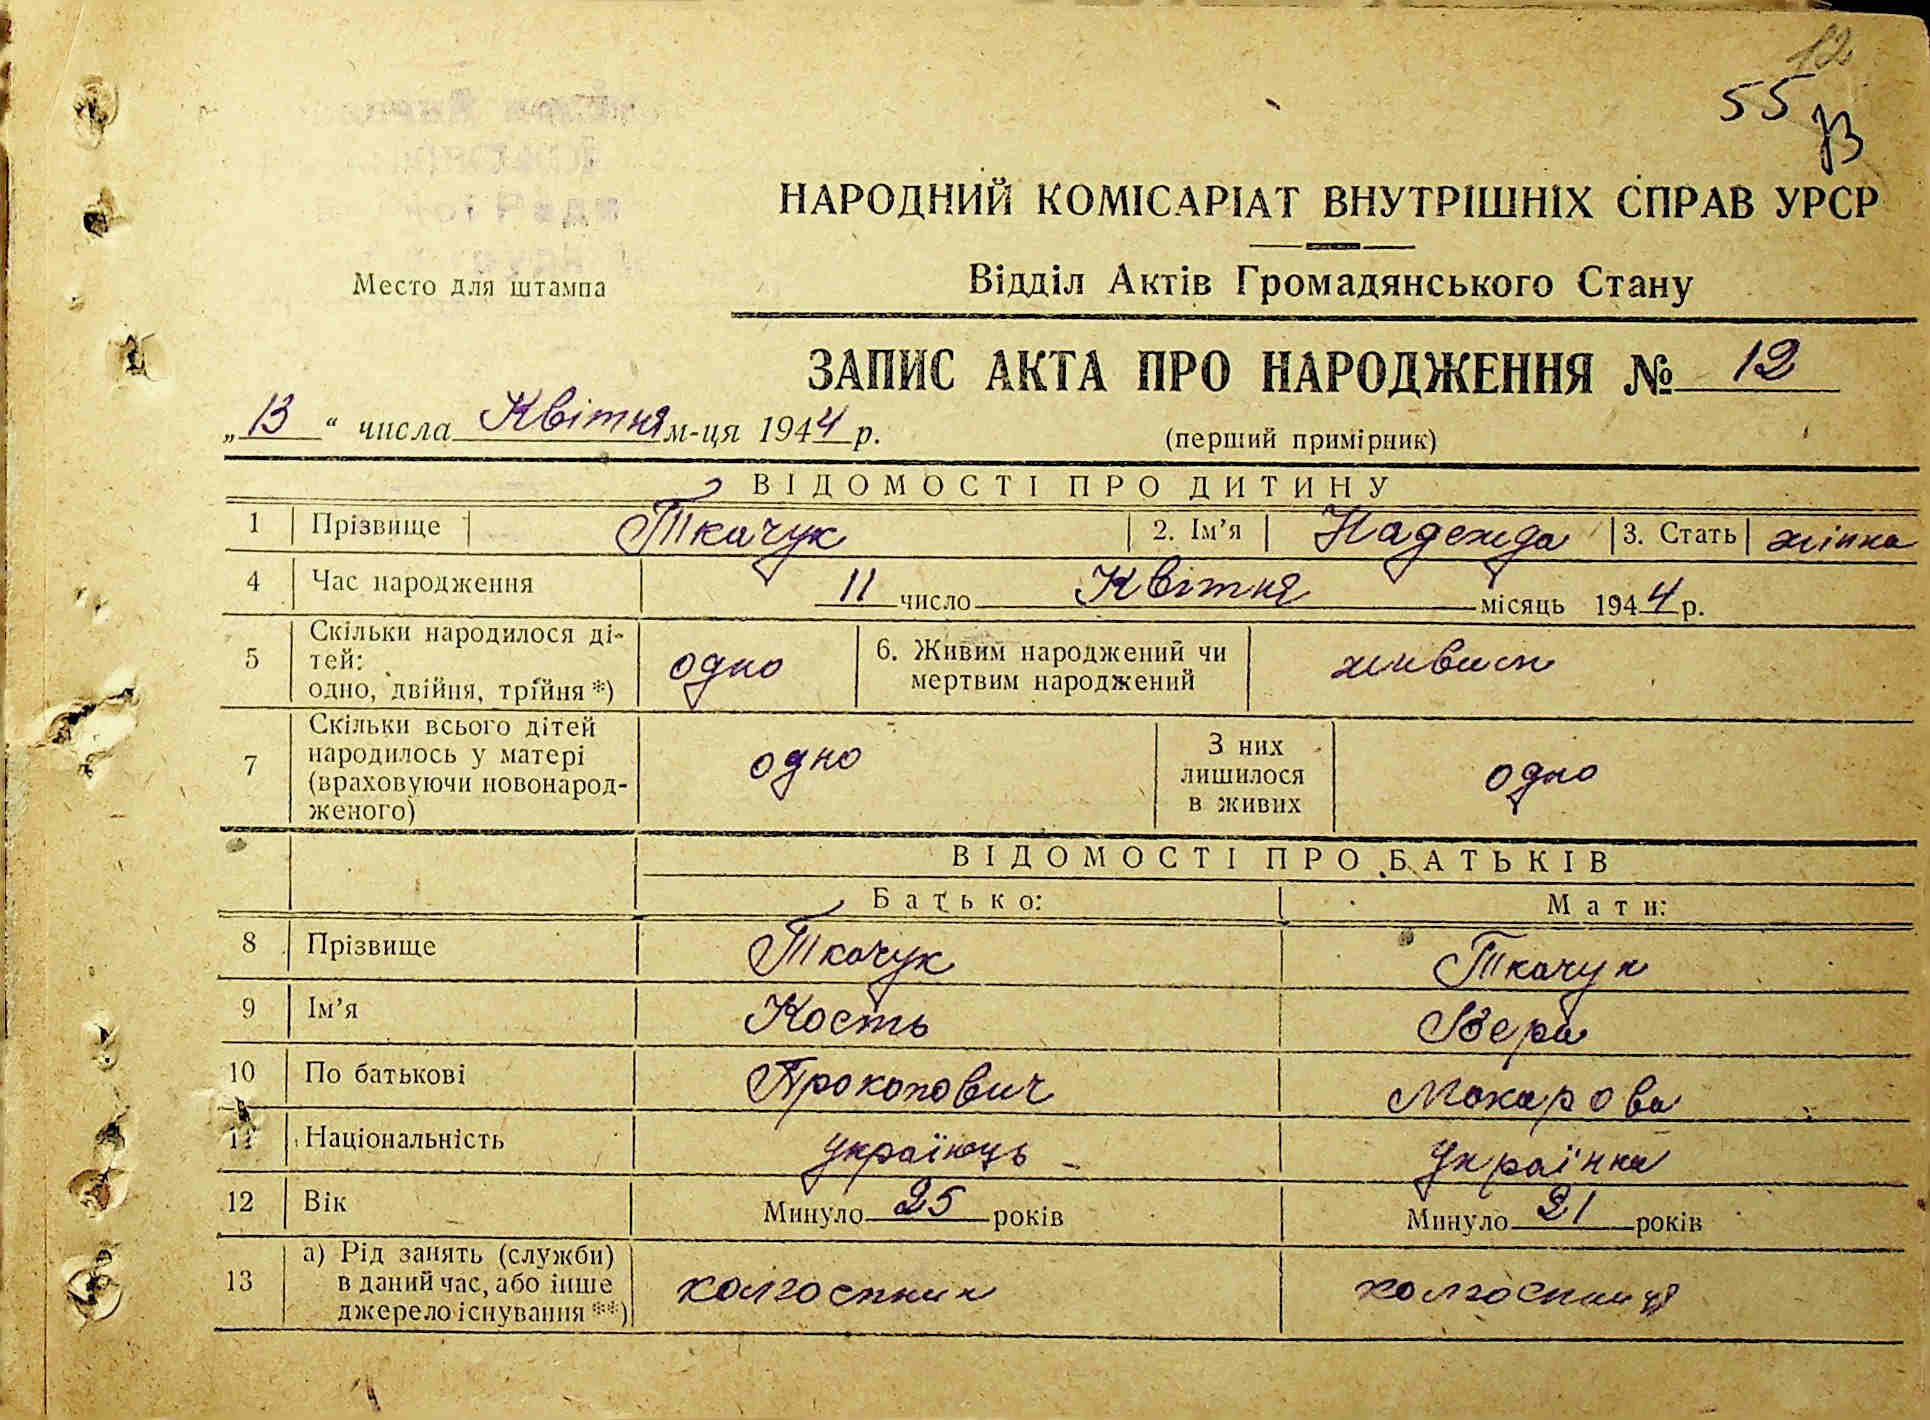 12
55
НАРОДНИЙ КОМІСАРІАТ ВНУТРІШНІХ СПРАВ УРСР
Место для штампа
Відділ Актів Громадянського Стану
ЗАПИС АКТА ПРО НАРОДЖЕННЯ № 12
„13“ числа Квітня м-ця 1944 р.
(перший примірник)
ВІДОМОСТІ ПРО ДИТИНУ
1 Прізвище Ткачук 2. Ім’я Надежда 3. Стать жінка
4 Час народження 11 число Квітня місяць 1944 р.
5 Скільки народилося ді-
тей:
одно, двійня, трійня *) одно 6. Живим народжений чи
мертвим народжений живим
7 Скільки всього дітей
народилось у матері
(враховуючи новонарод-
женого) одно З них
лишилося
в живих одно
ВІДОМОСТІ ПРО БАТЬКІВ
Батько: Мати:
8 Прізвище Ткачук Ткачук
9 Ім’я Кость Вера
10 По батькові Прокопович Макарова
11 Національність українець Українка
12 Вік Минуло 25 років Минуло 21 років
13 а) Рід занять (служби)
в даний час, або інше
джерело існування **) колгоспник колгоспниця